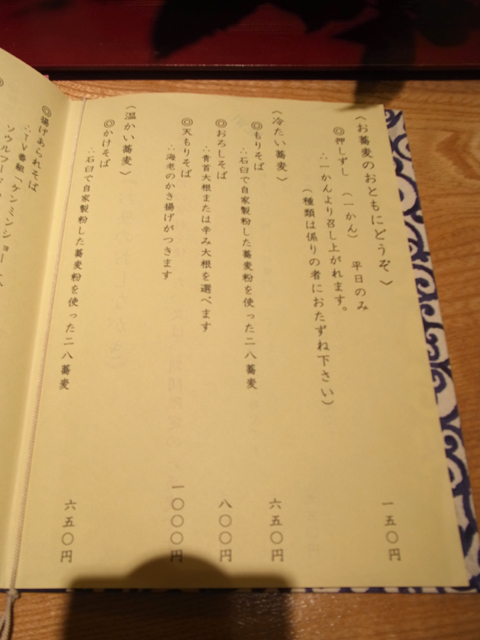 〈お蕎麦のおともにどうぞ〉
◎押しずし　（一かん）　平日のみ　一五〇円
∴一かんより召し上がれます。
（種類は係りの者におたずね下さい）
〈冷たい蕎麦〉
◎もりそば　六五〇円
∴石臼で自家製粉した蕎麦粉を使った二八蕎麦
◎おろしそば　八〇〇円
∴青首大根または辛み大根を選べます
◎天もりそば　一〇〇〇円
∴海老のかき揚げがつきます
〈温かい蕎麦〉
◎かけそば　六五〇円
∴石臼で自家製粉した蕎麦粉を使った二八蕎麦
◎揚げあられそば
∴TV番組、ケンミンショー
ソウルフード